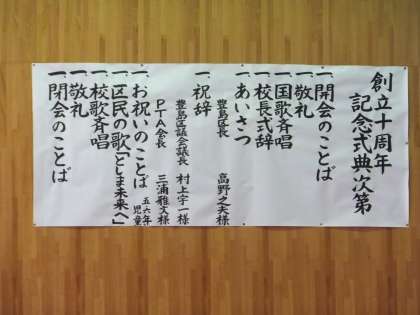 創立十周年
記念式典次第
一、開会のことば
一、敬礼
一、国歌斉唱
一、校長式辞
一、あいさつ
豊島区長 高野之夫様
一、祝辞
豊島区議会議長 村上宇一様
PTA会長 三浦雅文様
一、お祝いのことば 五六年児童
一、区民の歌「としま未来へ」
一、校歌斉唱
一、敬礼
一、閉会のことば